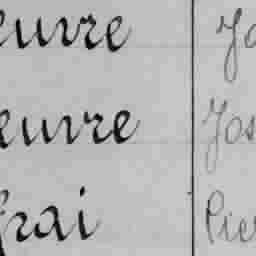 euvre Jo
euvre Jos
frai Pie